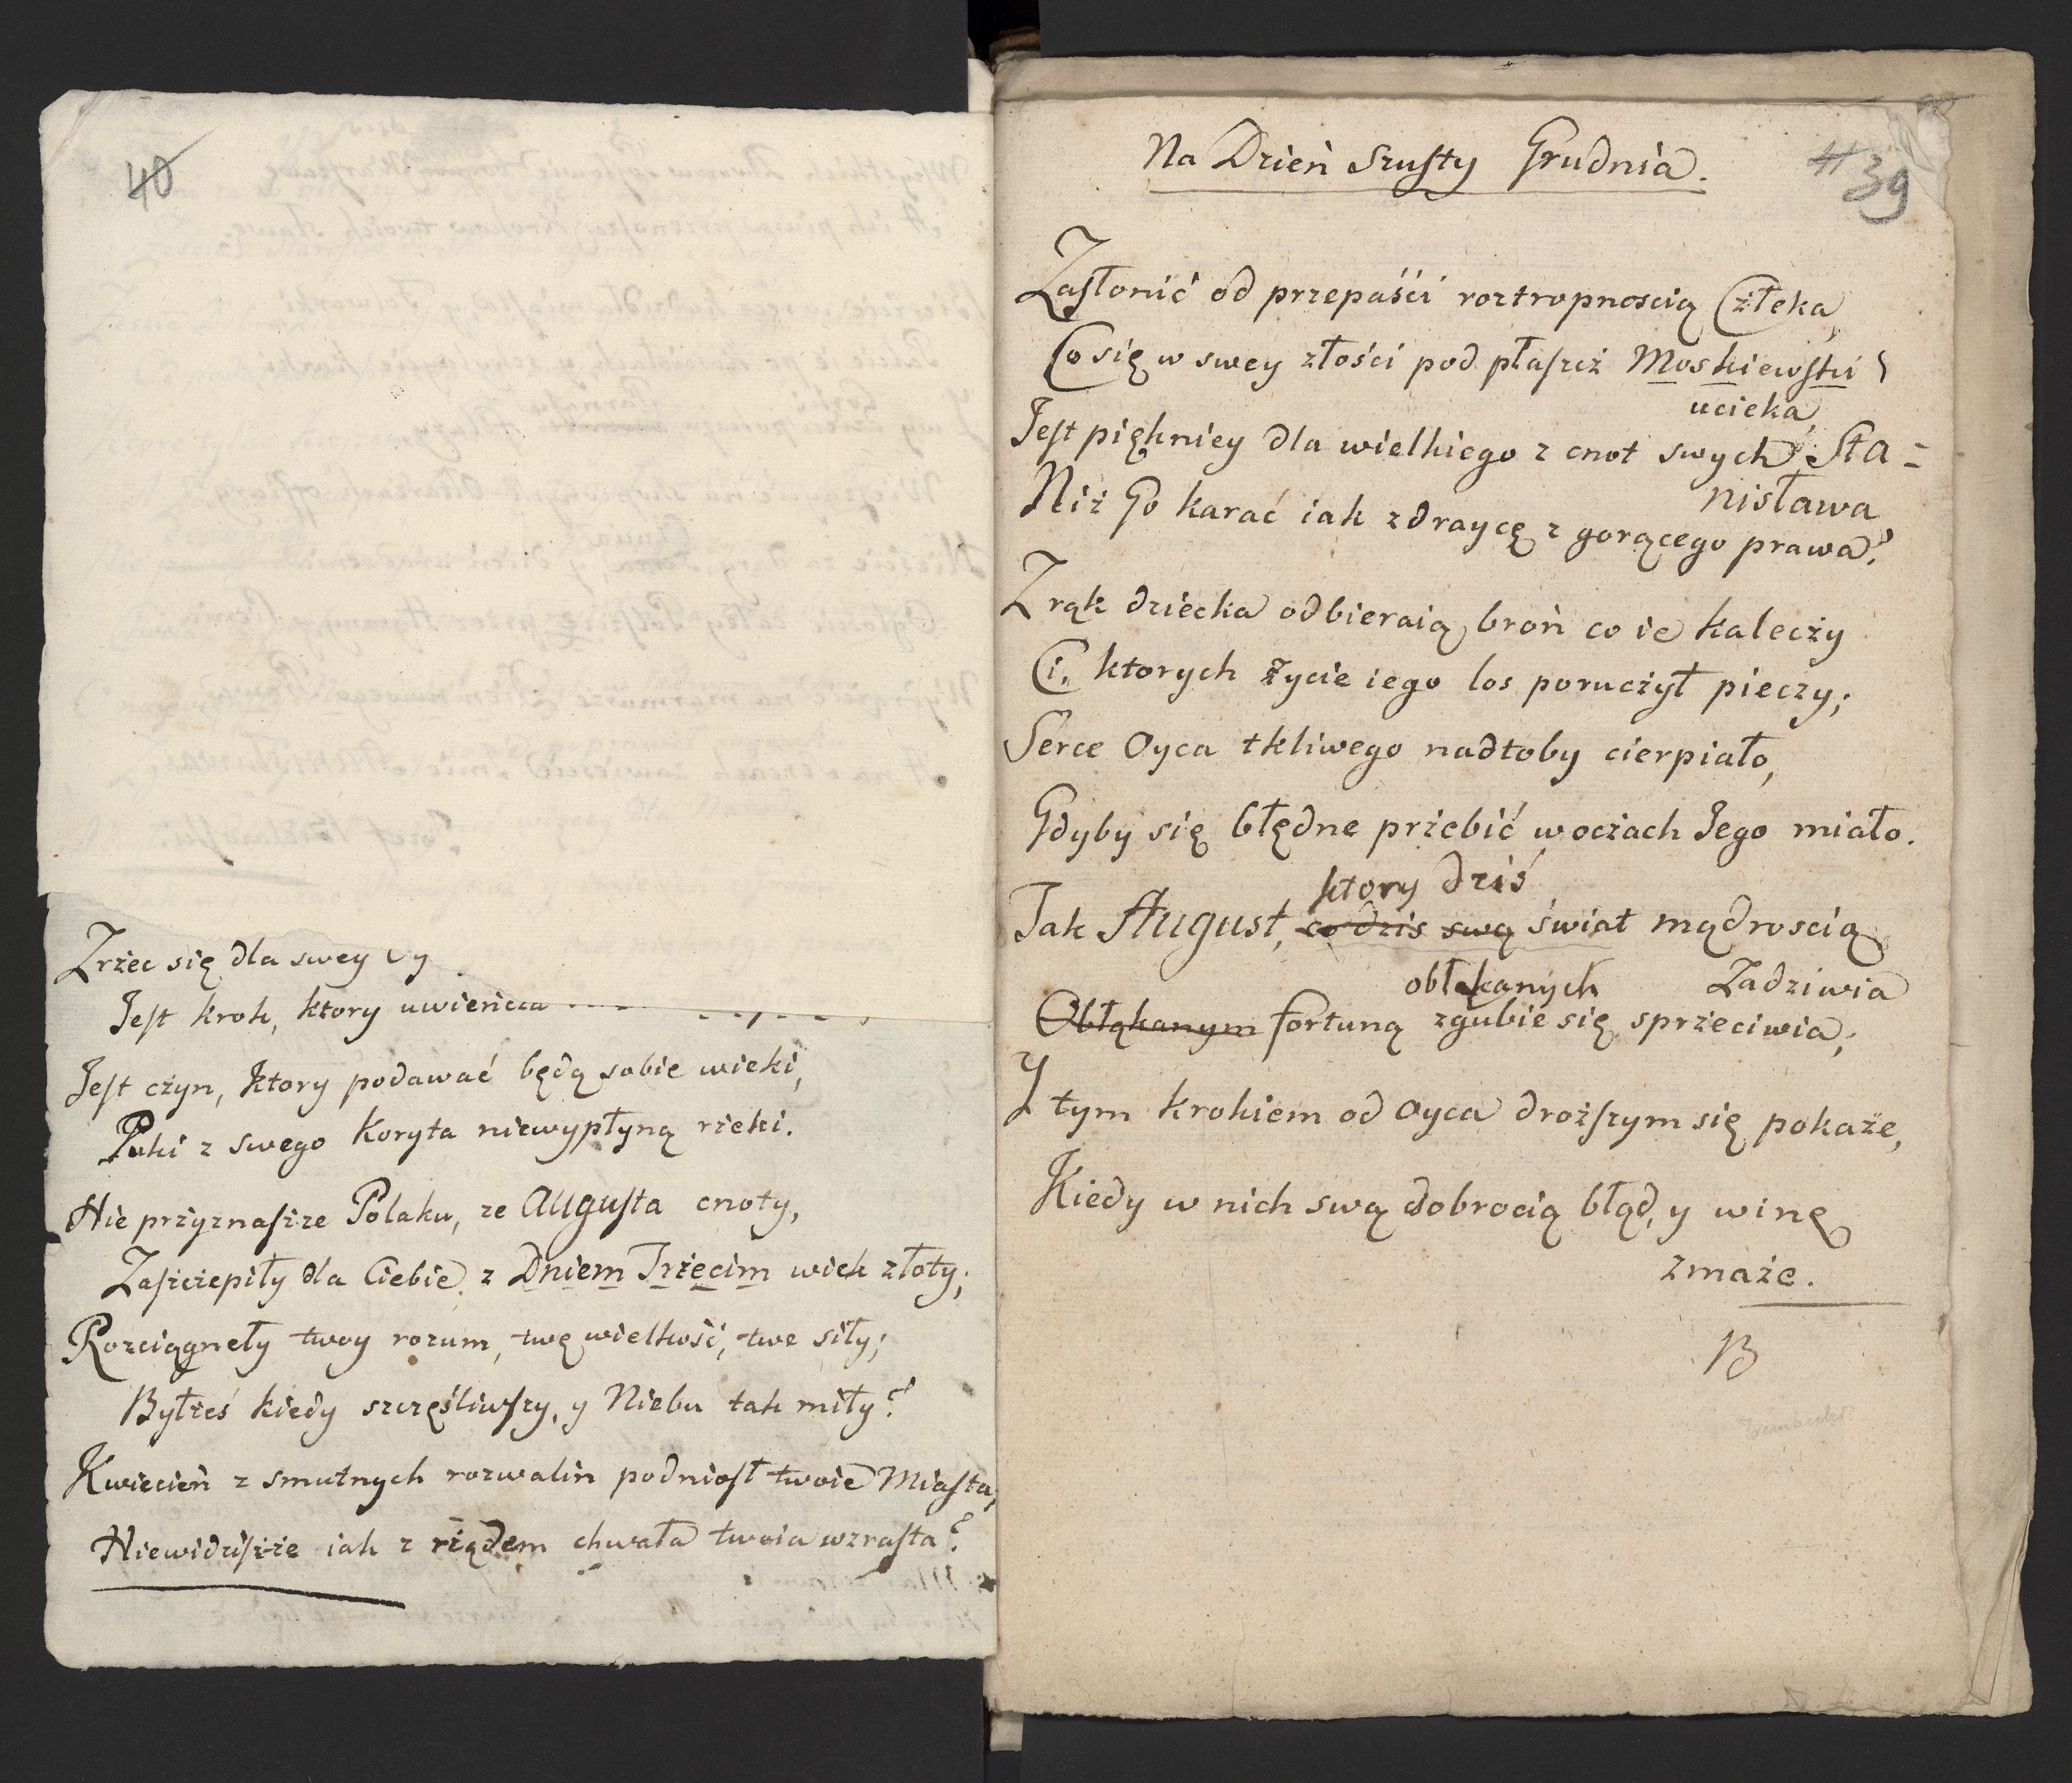 40
Zrżec się dla swey
Jest krok, ktory uwieńcza
Jest cżyn, ktory podawać będą sobie wieki,
Puki z swego Koryta niewypłyną rżeki.
Nie przyznaszże Polaku, ze Augusta cnoty,
Zaszcżepiły dla Ciebie z Dniem Trżecim wiek złoty;
Rozciągneły twoy rozum, twę wielkość, twe siły;
Byłżeś kiedy szczęśliwszy, y Niebu tak miły?
Kwiecień z smutnych rozwalin podniosł twoie Miasta,
Niewidziszże iak z rżądem chwała twoia wzrasta?
Na Dzień Szusty Grudnia.
41 39
Zasłonić od przepaśći roztropnoscią Człeka,
Co się w swey złości pod płaszcż Moskiewski
ucieka,
Jest piękniey dla wielkiego z cnot swych Sta=
nisława,
Niż Go karać iak zdraycę z gorącego prawa?
Z rąk dziecka odbieraią broń co ie kalecży
Ci, ktorych życie iego los porucżył pieczy;
Serce Oyca tkliwego nadtoby cierpiało,
Gdyby się błędne przebić w ocżach Jego miało.
ktory dziś
Tak August, co dzis swą świat mądroscią
Zadziwia
obłąkanych
Obłąkanym fortuną zgubie się sprżeciwia;
Y tym krokiem od Oyca droższym się pokaże,
Kiedy w nich swą dobrocią błąd, y winę
zmaże.
B